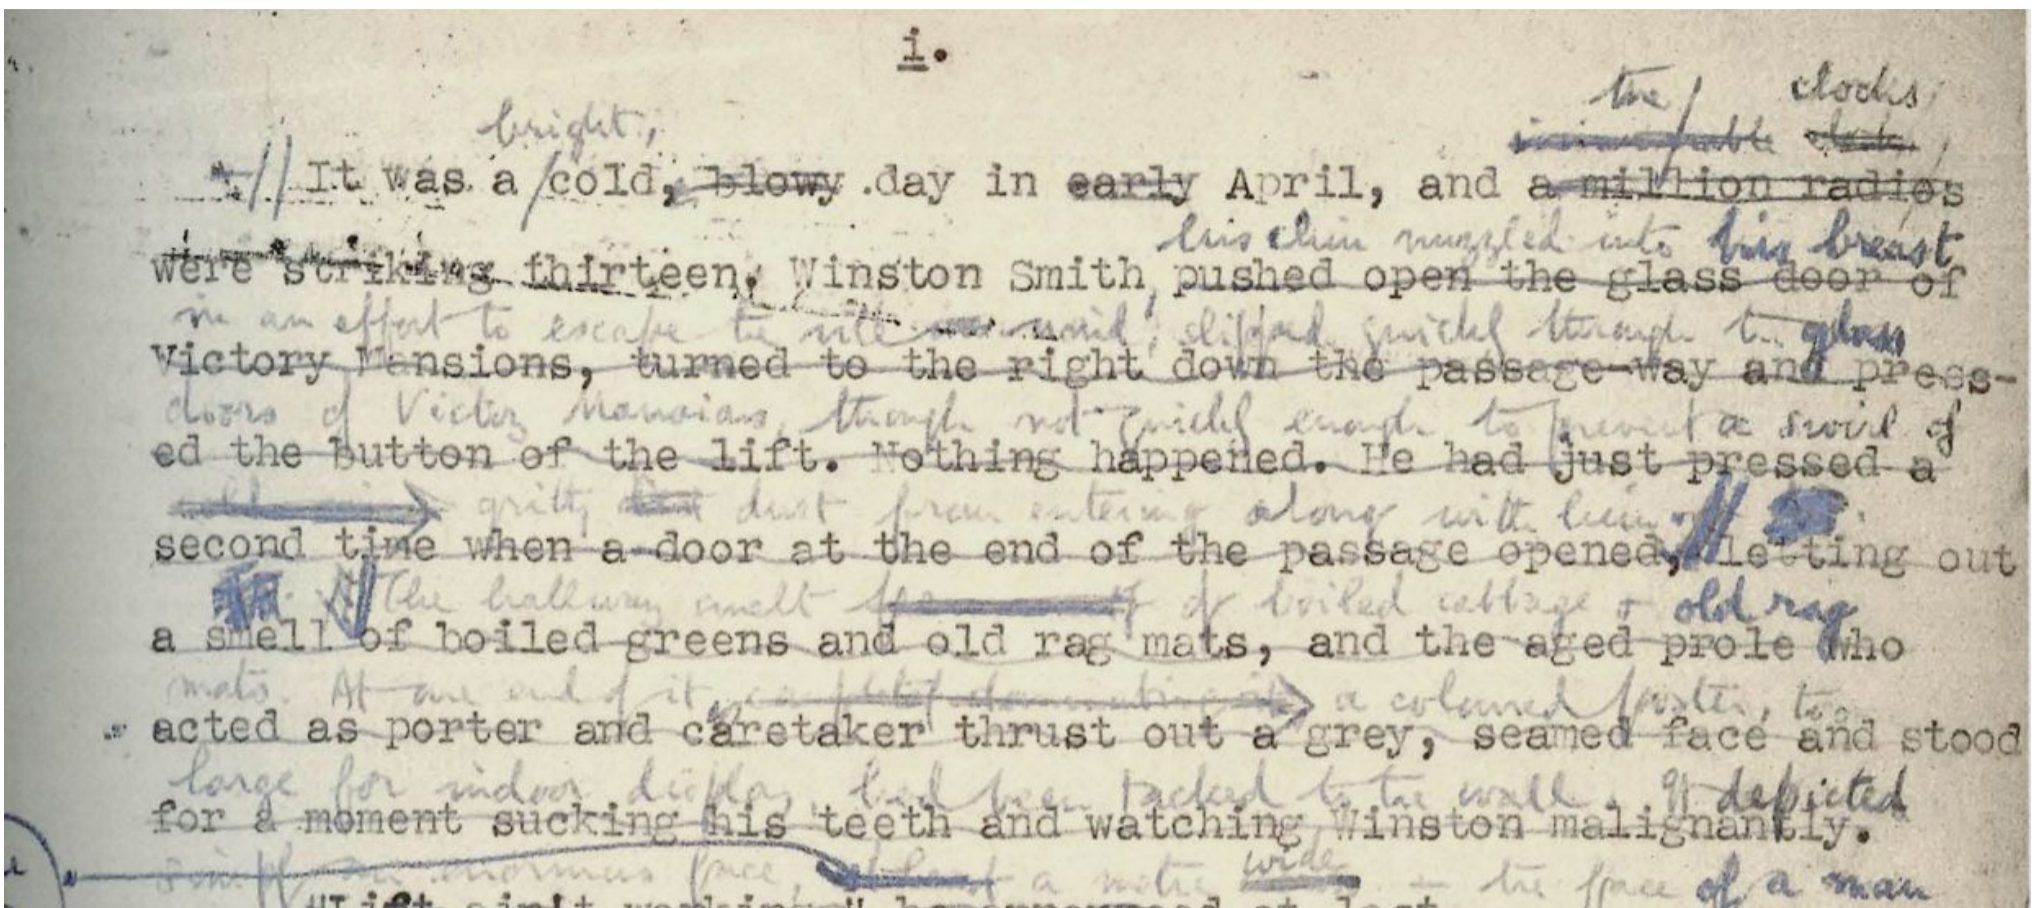 i.
the clocks,
bright, innumerable clocks,
It was a cold, blowy day in early April, and a million radios
his chin nuzzled into his breast
were striking thirteen. Winston Smith, pushed open the glass door of
in an effort to escape the vile wind, slipped quickly through the glass
Victory Mansions, turned to the right down the passage-way and press-
doors of Victory Mansions, though not quickly enough to prevent a swirl of
ed the button of the lift. Nothing happened. He had just pressed a
gritty dust from entering along with him.
second time when a door at the end of the passage opened, letting out
The hallway smelt of boiled cabbage & old rag
a smell of boiled greens and old rag mats, and the aged prole who
mats. At one end of it, a coloured poster, too
acted as porter and caretaker thrust out a grey, seamed face and stood
large for indoor display, had been tacked to the wall. It depicted
for a moment sucking his teeth and watching Winston malignantly.
simply an enormous face, a metre wide - the face of a man
"Lift ain't working," he announced at last.